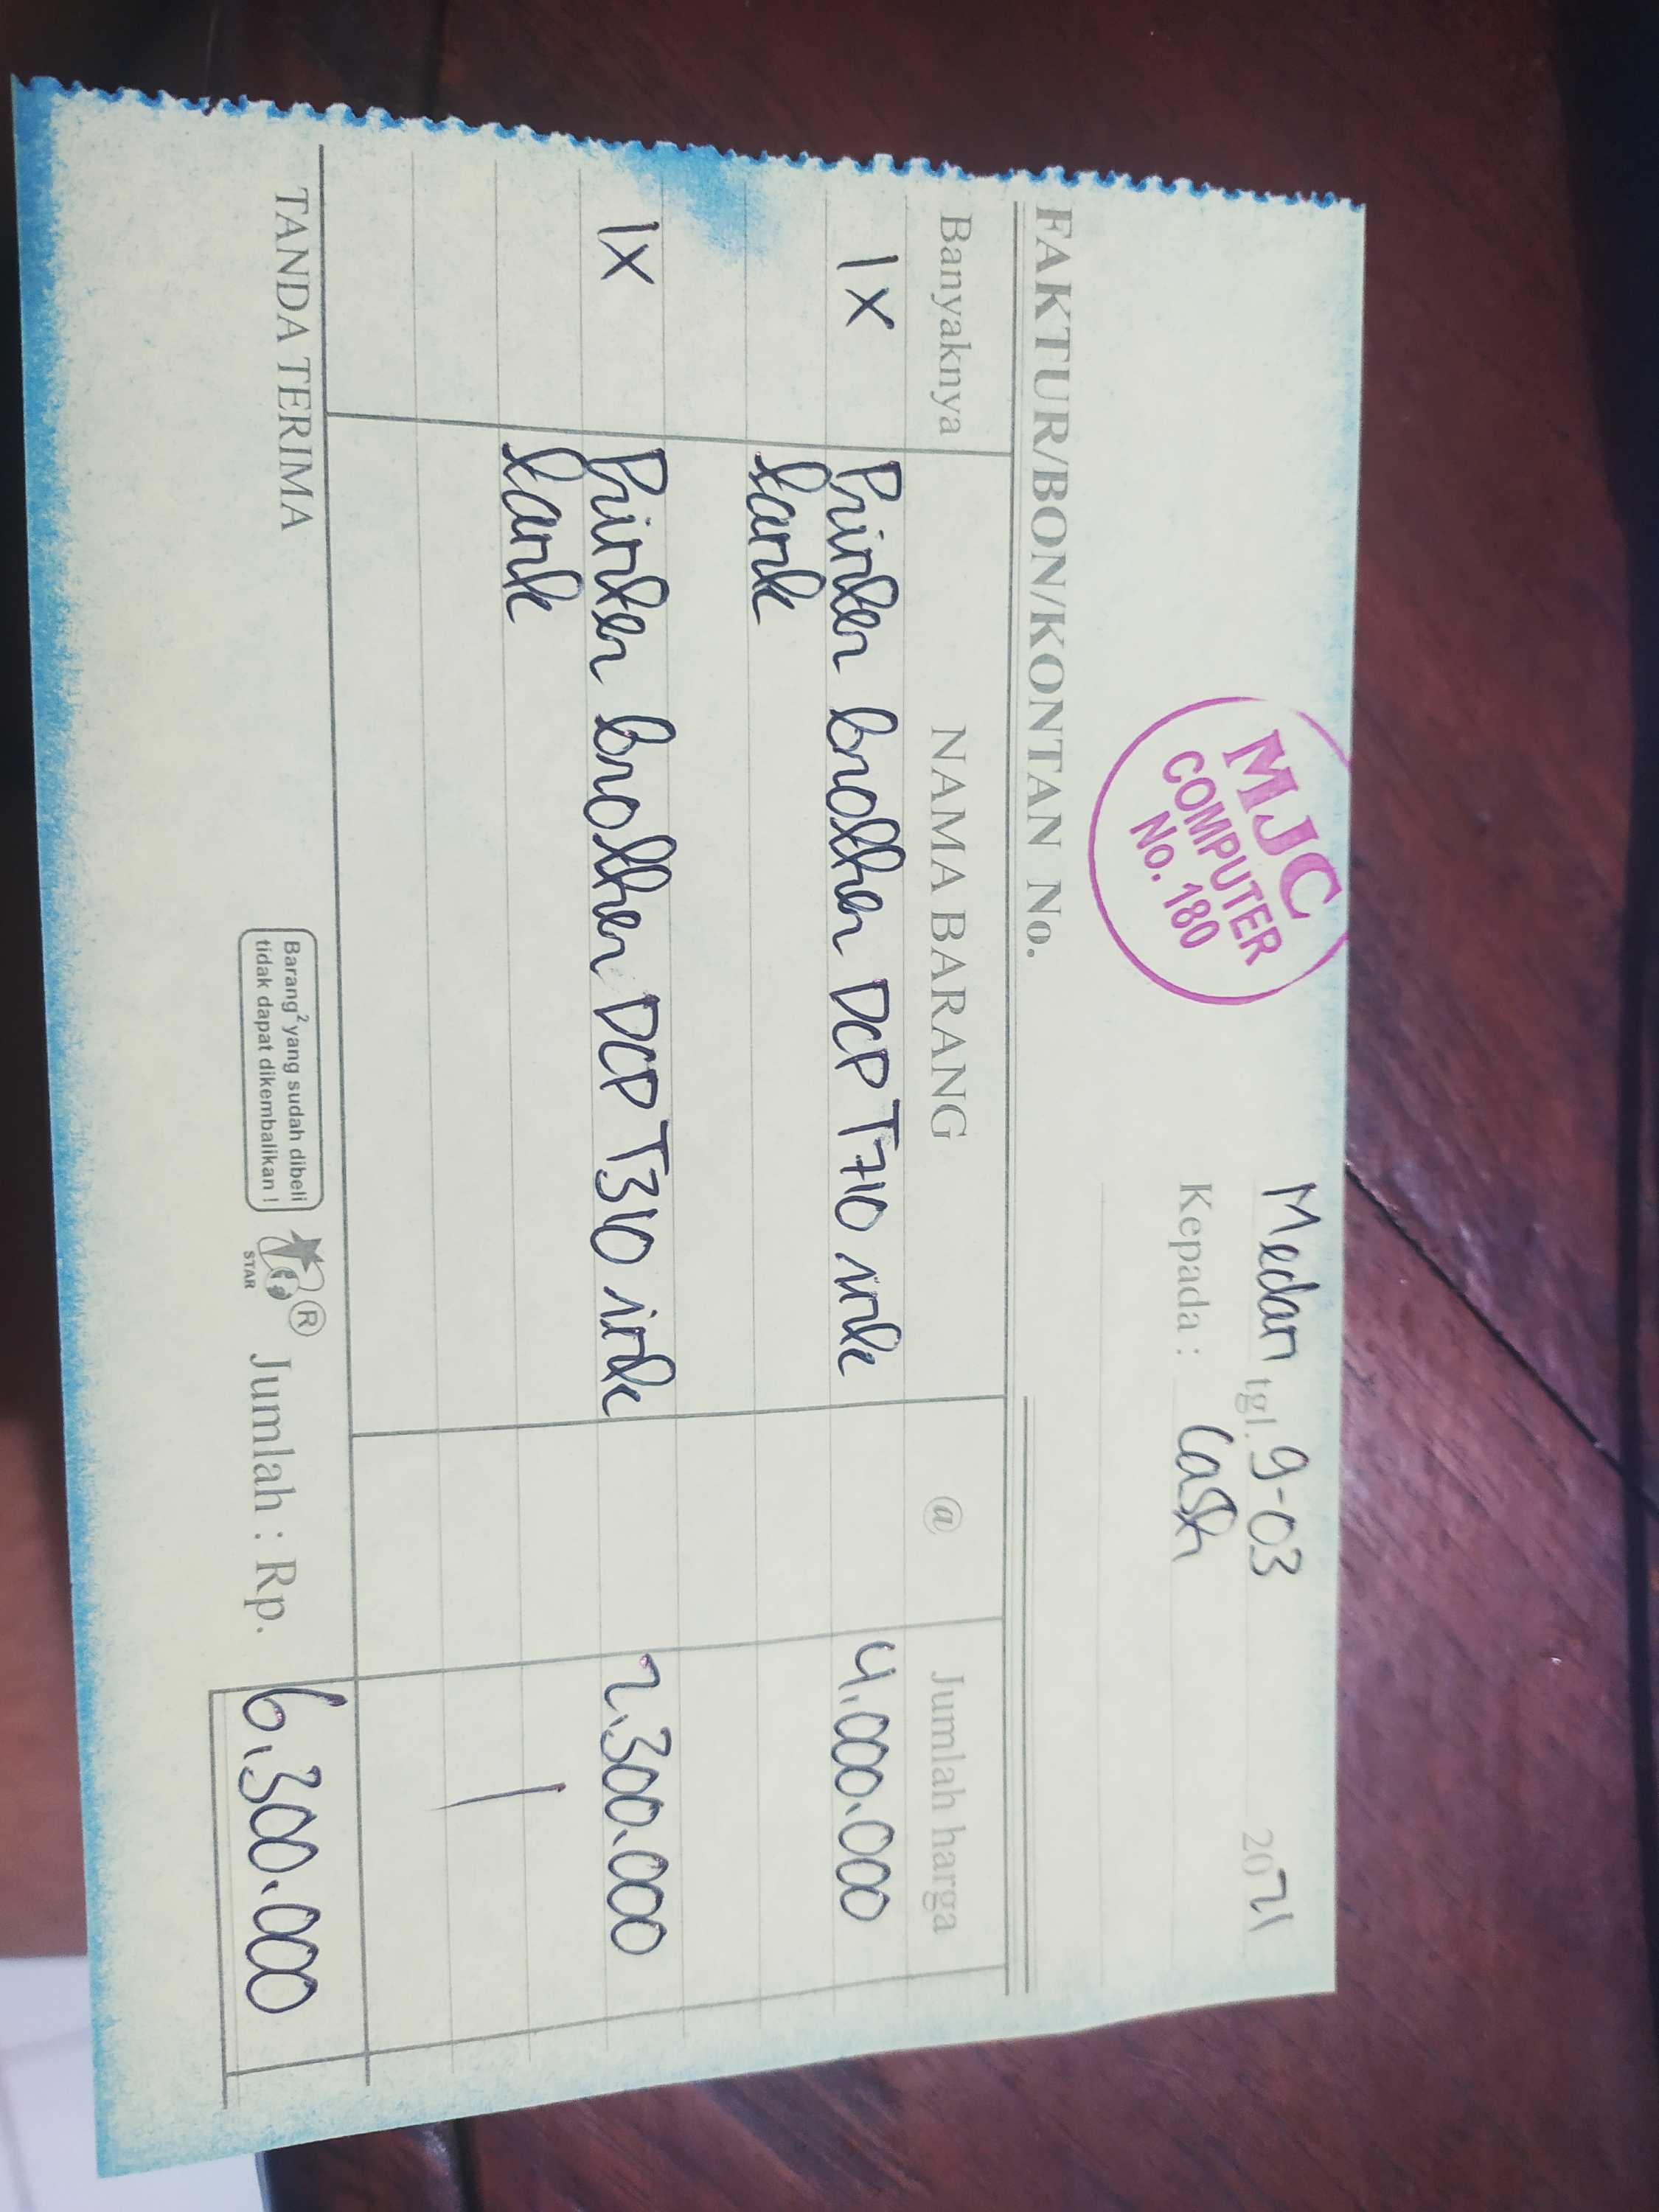 MJC
COMPUTER
No. 180
Medan tgl. 9-03 2021
Kepada : Cash
FAKTUR/BON/KONTAN No.
Banyaknya NAMA BARANG @ Jumlah harga
1x Printer brother DCP T710 ink 4.000.000
tank
1x Printer brother DCP T310 ink 2.300.000
tank
TANDA TERIMA
Barang² yang sudah dibeli
tidak dapat dikembalikan !
STAR
®
Jumlah : Rp. 6.300.000